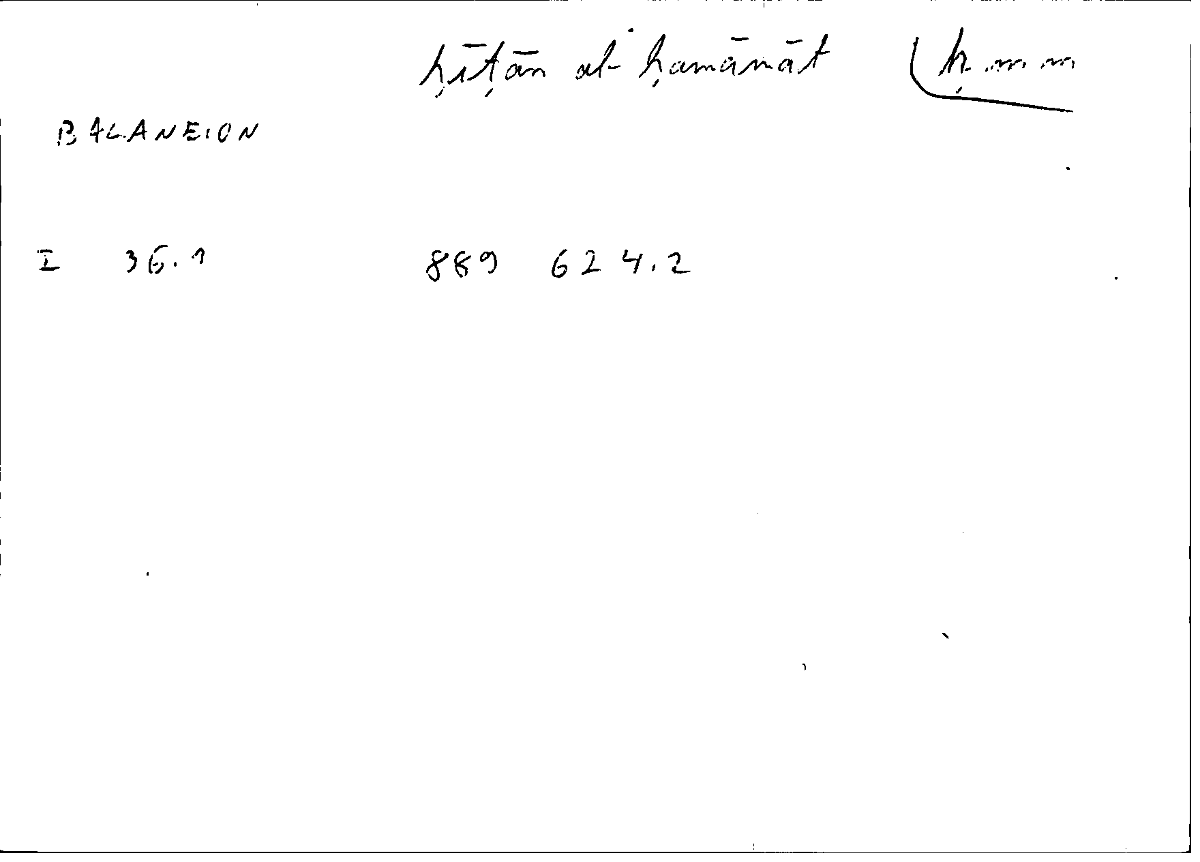 ḥīṭān al-ḥamāmāt ḥ.m.m
BALANEION
I 36.1 889 624.2